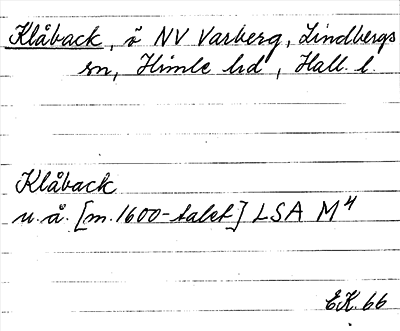 Klåback, ö NV Varberg, Lindbergs
sn, Himle hd, Hall. l.
Klåback
u.å. [m. 1600-talet] LSA M⁴
EK. 66